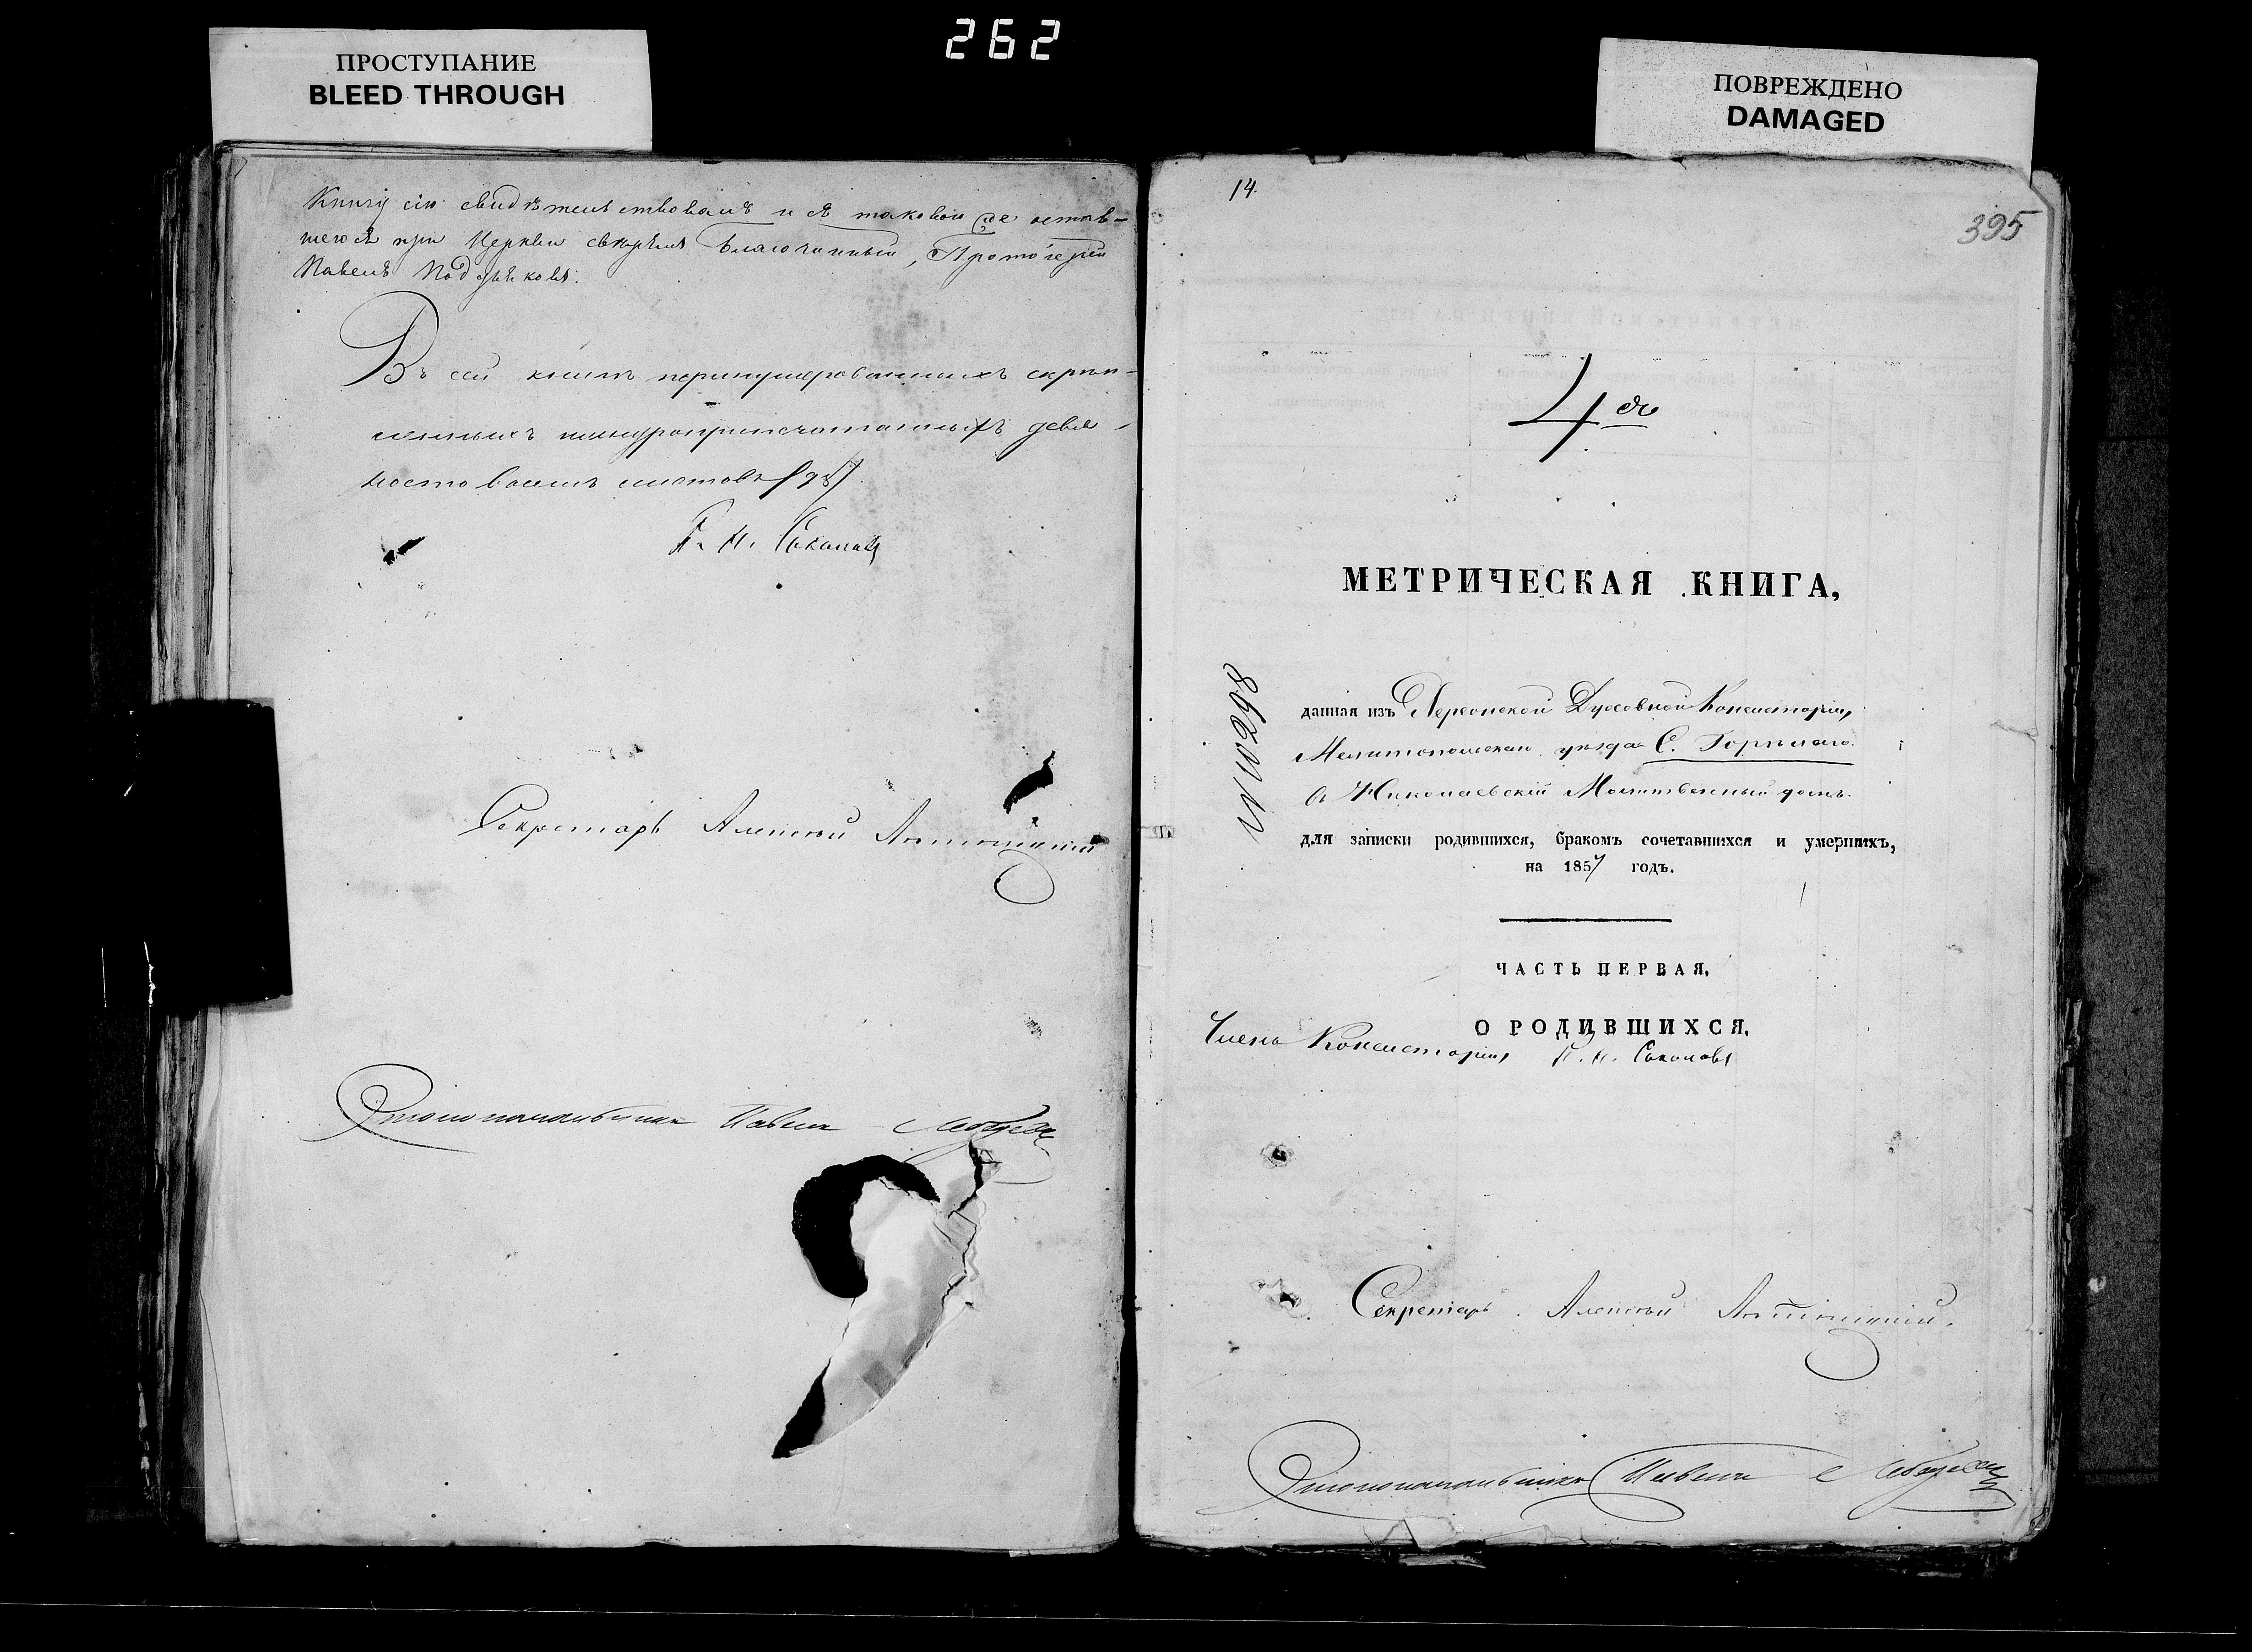 262
ПРОСТУПАНИЕ
BLEED THROUGH
ПОВРЕЖДЕНО
DAMAGED
Книгу сію свидѣтельствовалъ и съ таковою же остав-
шеюся при Церкви свѣрялъ Благочинный, Протоіерей
Павелъ
Въ сей книгѣ перенумерованныхъ скрѣп-
ленныхъ шнуроприпечатанныхъ девя-
носто восемь листовъ (98)
П. И. Соколовъ
Секретарь Алексѣй
Столоначальникъ Павелъ
14.
395
4я
МЕТРИЧЕСКАЯ КНИГА,
№ 10298
данная изъ Херсонской Духовной Консисторіи,
Мелитопольскаго уѣзда С. Горѣлаго
въ Николаевскій Молитвенный домъ.
для записки родившихся, бракомъ сочетавшихся и умершихъ,
на 1857 годъ.
ЧАСТЬ ПЕРВАЯ,
О РОДИВШИХСЯ.
Членъ Консисторіи, П. И. Соколовъ
Секретарь Алексѣй
Столоначальникъ Павелъ